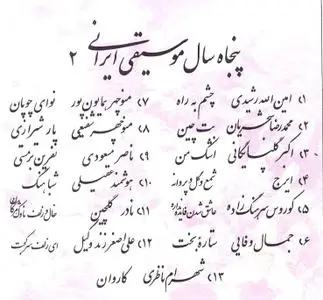 پنجاه سال موسیقی ایرانی ۲
۱) امین الله رشیدی چشم به راه ۷) منوچهر همایون پور نوای چوپان
۲) محمدرضا شجریان بت چین ۸) منوچهر شفیعی یار شیرازی
۳) اکبر گلپایگانی اشک من ۹) ناصر مسعودی نفرین
۴) ایرج شمع و گل و پروانه ۱۰) هوشمند عقیلی شباهنگ
۵) کوروس سرهنگ زاده عاشق شدن فایده نداره ۱۱) نادر گلچین
۶) جمال وفایی ستاره بخت ۱۲) علی اصغر زند وکیل ای زلف سرکجت
۱۳) شهرام ناظری کاروان